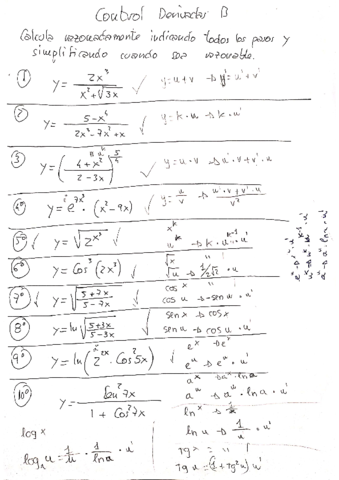 Control Derivadas B
Calcula razonadamente indicando todos los pasos y
simplificando cuando sea razonable.
① y = 2x³ / (x² + √3x) y = u + v → y' = u' + v'
② y = (5 - x⁴) / (2x³ - 7x² + x) y = k · u → k · u'
③ y = ((4 + x²) / (2 - 3x)) y = u · v → u' · v + v' · u
④ y = e · (x² - 9x) y = u/v → u' · v + v' · u / v²
⑤ y = √2x³ x^k
u^k → k · u^k-1 · u'
⑥ y = cos³(2x³) √x "
√u → 1/2√u · u'
⑦ y = √((5 + 7x) / (5 - 7x)) cos x "
cos u → -sen u · u'
⑧ y = ln √((5 + 3x) / (5 - 3x)) sen x → cos x
sen u → cos u · u'
⑨ y = ln(2^2x · cos² 5x) e^x → e^x
e^u → e^u · u'
a^x → a^x · ln a
⑩ y = sen² 7x / (1 + cos² 7x) a^u → a^u · ln a · u'
ln x → 1/x
ln u → 1/u · u'
log x tg x = " "
log u = 1/u · 1/ln a · u' tg u = (1 + tg² u) u'